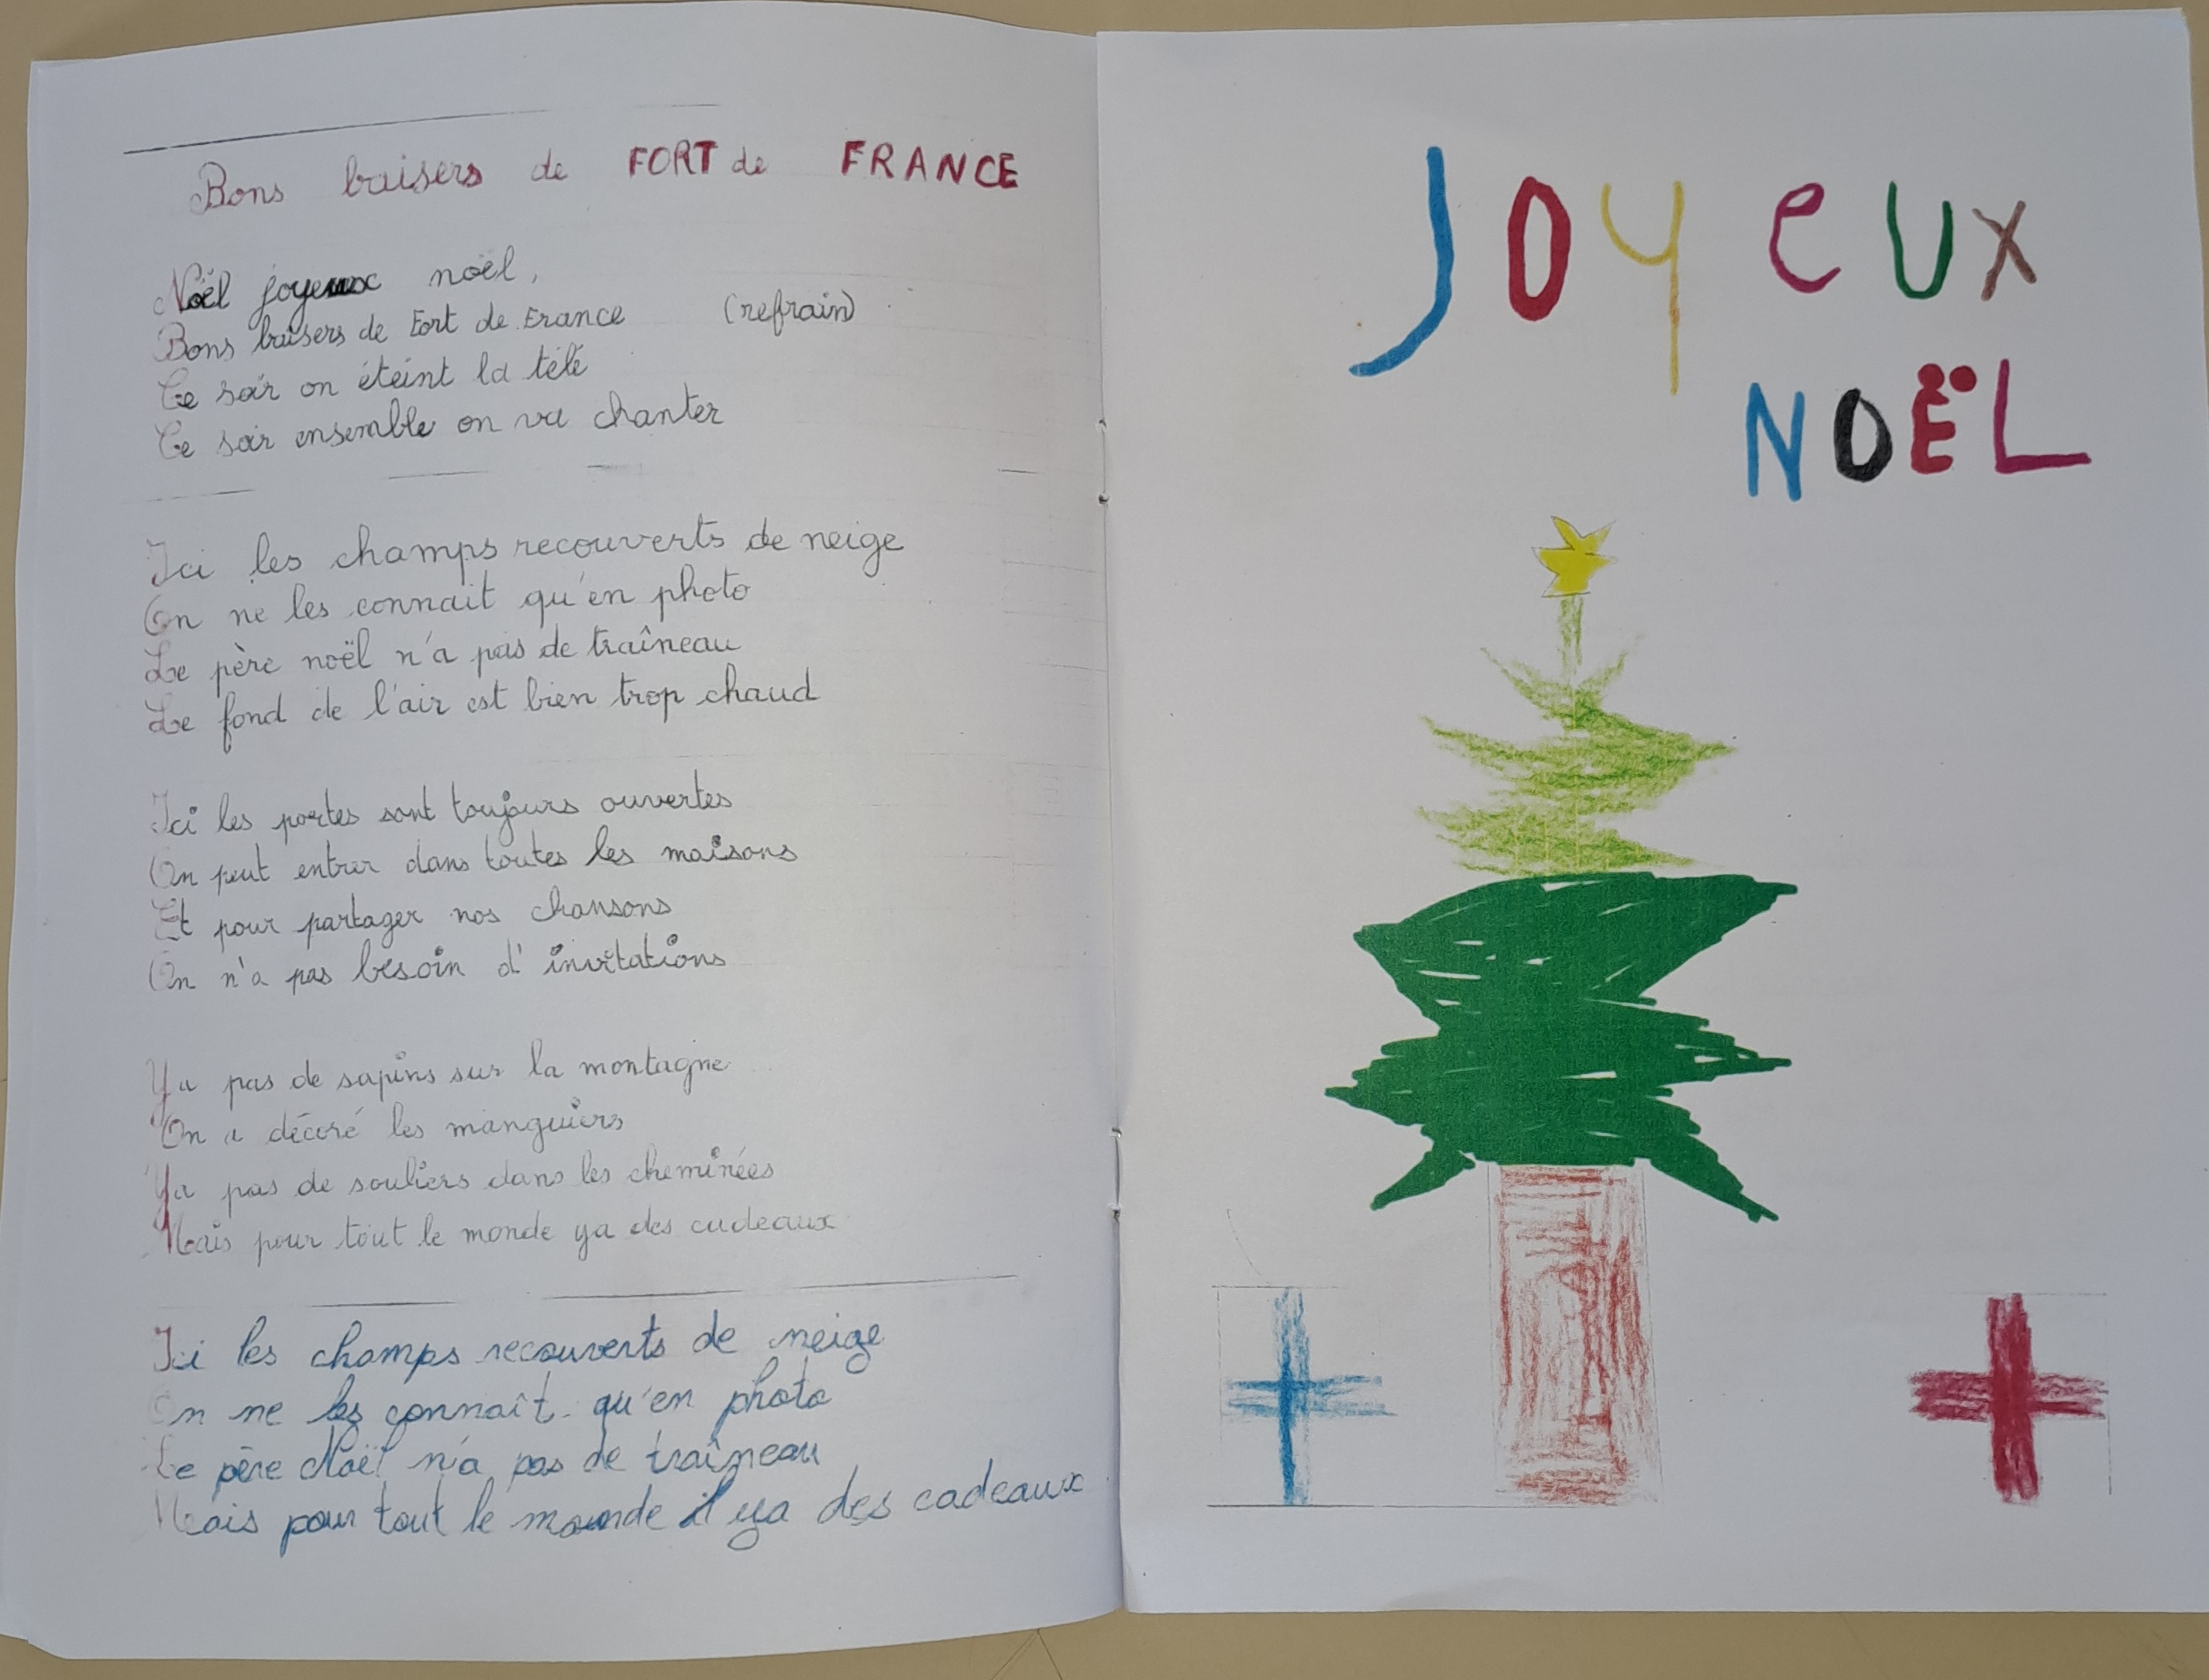 Bons baisers de FORT de FRANCE
Noël joyeux noël,
Bons baisers de Fort de France (refrain)
Ce soir on éteint la télé
Ce soir ensemble on va chanter
Ici les champs recouverts de neige
On ne les connait qu'en photo
Le père noël n'a pas de traîneau
Le fond de l'air est bien trop chaud
Ici les portes sont toujours ouvertes
On peut entrer dans toutes les maisons
Et pour partager nos chansons
On n'a pas besoin d'invitations
Ya pas de sapins sur la montagne
On a décoré les manguiers
Ya pas de souliers dans les cheminées
Mais pour tout le monde ya des cadeaux
Ici les champs recouverts de neige
On ne les connaît qu'en photo
Le père Noël n'a pas de traîneau
Mais pour tout le mounde il ya des cadeaux
JOYeUX
NOËL